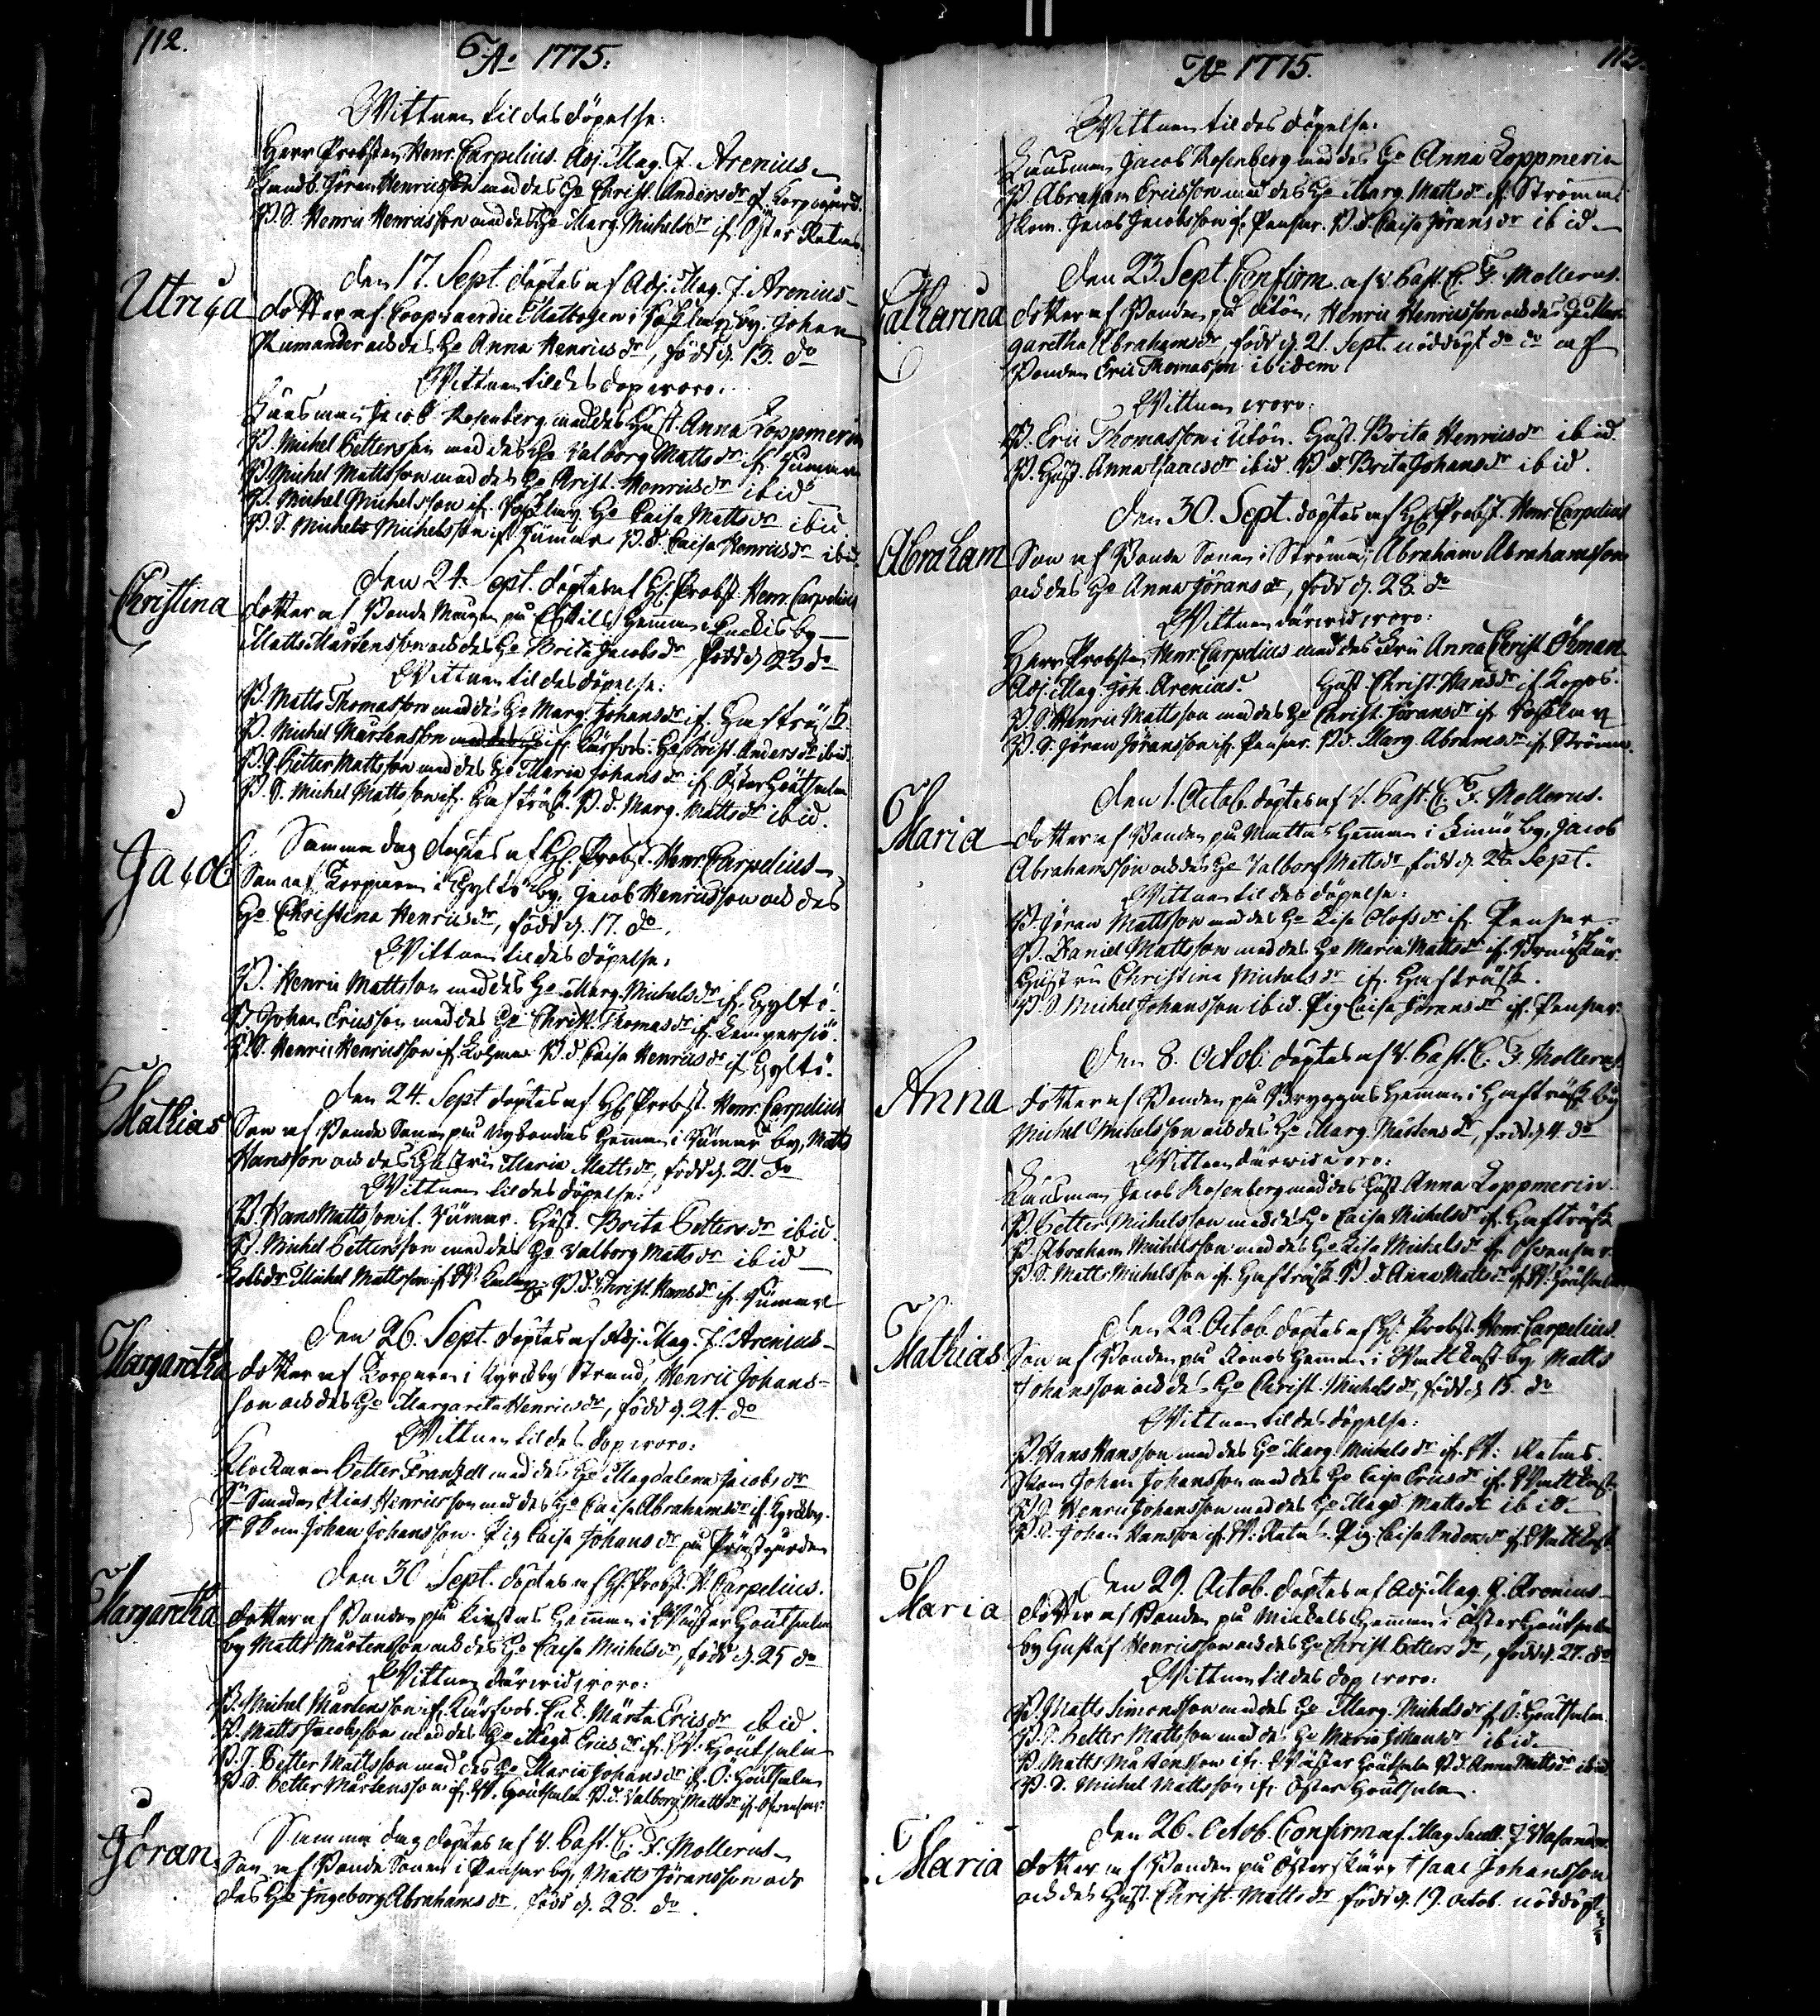 112.
Ao 1775.
Wittnen til des döpelse:
Herr Probsten Henr. Carpelius. Adj. Mag. J. Arenius
Landb. Jöran Henricsson med des Ho Christ. Andersdr if.
P. S. Henric Henricsson med des Ho Marg. Michelsdr if. Öster Retais
den 17. Sept. döptes af Adj. Mag. J. Arenius
Ulrica
dotter af Coopvaerdie Matrosen i by. Johan
och des Ho Anna Henricsdr, född d. 13. do
Wittnen til des dop woro:
Länsman Jacob Rosenberg med des Hust. Anna Toppmerin
B. Michel Pettersson med des Ho Valborg Mattsdr if.
B. Michel Mattsson med des Ho Christ. Henricsdr ibid
B. Michel Michelsson if. Ho Caisa Mattsdr ibid
B. S. Michel Michelsson if. B. d. Caisa Henricsdr ibid.
den 24. Sept. döptes af H. Probst. Henr. Carpelius
Christina
dotter af Bonde Mågen på Hemman i by
Matts Mårtensson och des Ho Brita Jacobsdr född d. 23 do
Wittnen til des döpelse:
B. Matts Thomasson med des Ho Marg. Johansdr if. Gesträsk
B. Michel Mårtensson if. Kärfvos. Ho Christ. Andersdr ibid.
B. S. Petter Mattsson med des Ho Maria Johansdr if. Öster Göutsala
B. S. Michel Mattsson if. Gesträsk. B. d. Marg. Mattsdr ibid.
Samma dag döptes af H. Probst. Henr. Carpelius
Jacob
Son af Torparen i Gyltö by, Jacob Henricsson och des
Ho Christina Henricsdr, född d. 17. do.
Wittnen til des döpelse:
B. Henric Mattsson med des Ho Marg. Michelsdr if. Gyltö.
B. Johan Ericsson med des Ho Christ. Thomasdr if.
B. S. Henric Henricsson if. B. d. Caisa Henricsdr if. Gyltö.
den 24. Sept döptes af H. Probst. Henr. Carpelius
Mathias
Son af Bonde Sonen på Nybondas Hemman i by, Matts
Hansson och des Hustru Maria Mattsdr, född d. 21. do
Wittnen til des döpelse:
B. Hans Mattsson if. Hust. Brita Pettersdr ibid.
B. Michel Pettersson med des Ho Valborg Mattsdr ibid
Michel Mattsson if. B. d. Christ. Hansdr if.
den 26. Sept. döptes af Adj. Mag. J. Arenius
Margaretha
dotter af Torparen i Kyrckby Strand, Henric Johans=
son och des Ho Margareta Henricsdr, född d. 24. do
Wittnen til des dop woro:
Klockaren Petter Frantzell med des Ho Magdalena Jacobsdr
Smeden Elias Hinricsson med des Ho Caisa Abrahamsdr if. Kyrckby.
Skom Johan Johansson. Pig. Caisa Johansdr på Prästgården
den 30 Sept. döptes af H. Probst. H. Carpelius.
Margaretha
dotter af Bonden på Hemman i Wäster Göutsala
by Matts Mårtensson och des Ho Caisa Michelsdr, född d. 25 do
Wittnen därwid woro:
B. Michel Mårtensson if. Kärfvos. Märta Ericsdr ibid.
B. Matts Jacobsson med des Ho Magd. Ericsdr if. W. Göutsala
B. S. Petter Mattsson med des Ho Maria Johansdr if. Ö: Göutsala
B. S. Petter Mårtensson if. W. Göutsala B. d. Valborg Mattsdr if.
Samma dag döptes af V. Past. C. F. Mollerus
Jöran
Son af Bonde Sonen i Pensar by, Matts Jöransson och
des Ho Ingeborg Abrahamsdr, född d. 28. do.
112.
Ao 1775.
Wittnen til des döpelse:
Länsman Jacob Rosenberg med des Ho Anna Toppmerin
B. Abraham Ericsson med des Ho Marg. Mattsdr if. Strömma
Skom. Jacob Jacobsson if. Pensar. B. d. Caisa Jöransdr ibid
den 23. Sept. Confirm. af V. Past. C. F. Mollerus.
Catharina
dotter af Bonden på Utön, Henric Henricsson och des Ho Mar=
garetha Abrahamsdr, född d. 21. Sept. nöddöpt do do af
Bonden Eric Thomasson ibidem
Wittnen woro:
B. Eric Thomasson i Utön. Hust. Brita Henricsdr ibid.
B. Hust. Anna Isaacsdr ibid. B. d. Brita Johansdr ibid.
den 30. Sept. döptes af H. Probst. Henr. Carpelius
Abraham
Son af Bonde Sonen i Strömma, Abraham Abrahamsson
och des Ho Anna Jöransdr, född d. 28. do
Wittnen därwid woro:
Herr Probsten Henr. Carpelius med des Fru Anna Christ. Öhman
Adj. Mag. Joh. Arenius. Hust. Christ. Hansdr if. Koppos.
B. S. Henric Mattsson med des Ho Christ. Jöransdr if.
B. S. Jöran Jöransson if. Pensar. B. d. Marg. Abramsdr if. Strömma.
den 1. Octob. döptes af V. Past. C. F. Mollerus.
Maria
dotter af Bonden på Mattas Hemman i by, Jacob
Abrahamsson och des Ho Valborg Mattsdr, född d. 28. Sept.
Wittnen til des döpelse:
B. Jöran Mattsson med des Ho Lisa Olofsdr if. Pensar.
B. Daniel Mattsson med des Ho Maria Mattsdr if.
Hustru Christina Michelsdr if. Gesträsk.
B. S. Michel Johansson ibid. Pig. Caisa Jöransdr if. Pensar.
den 8. Octob: döptes af V. Past. C. F. Mollerus
Anna
dotter af Bonden på Bryggas Hemman i Gesträsk by
Michel Michelsson och des Ho Marg. Mårtensdr, född d. 4. do
Wittnen därwid woro:
Länsman Jacob Rosenberg med des Hust. Anna Toppmerin.
B. Petter Michelsson med des Ho Caisa Michelsdr if. Gesträsk
B. Abraham Michelsson med des Ho Lisa Michelsdr if.
B. S. Matts Michelsson if. Gesträsk B. d. Anna Mattsdr if. W. Göutsala
den 22. Octob. döptes af H. Probst. Henr. Carpelius.
Mathias
Son af Bonden på Hemman i Wattkast by Matts
Johansson och des Ho Christ. Michelsdr, född d. 15. do
Wittnen til des döpelse:
B. Hans Hansson med des Ho Marg. Michelsdr if. W: Retais.
Skom Johan Johansson med des Ho Caisa Ericsdr if. Wattkast.
B. S. Henric Johansson med des Ho Magd. Mattsdr ibid
B. S. Johan Hansson if. W: Retais. Pig. Caisa Andersdr if. Wattkast
den 29. Octob. döptes af Adj. Mag. J. Arenius
Maria
dotter af Bonden på Mickels Hemman i Öster Göutsala
by Gustaf Henricsson och des Ho Christ. Pettersdr, född d. 27. do
Wittnen til des dop woro:
B. Matts Simonsson med des Ho Marg. Michelsdr if. Ö: Göutsala.
B. S. Petter Mattsson med des Ho Maria Johansdr ibid
B. Matts Mårtensson ifr. Wäster Göutsala B. d. Anna Mattsdr ibid
B. S. Michel Mattsson ifr. Öster Göutsala.
den 26. Octob. Confirm af Mag.
Maria
dotter af Bonden på Österskär, Isaac Johansson
och des Hust. Christ. Mattsdr född d. 19. octob. nöddöpt